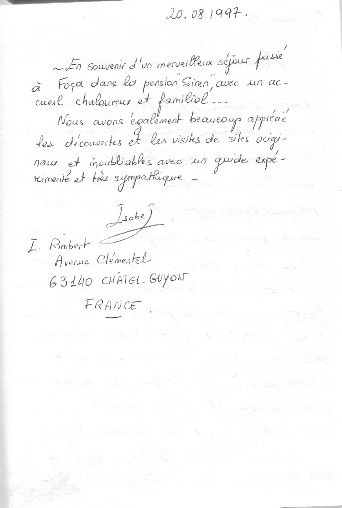 20.08.1997.
~ En souvenir d'un merveilleux séjour passé
à Foça dans la pension "Siren", avec un ac-
cueil chaleureux et familial...
Nous avons également beaucoup apprécié
les découvertes et les visites de sites origi-
naux et inoubliables avec un guide expé-
rimenté et très sympathique -
I. Rimbert
Avenue Clémentel
63140 CHÂTEL-GUYON
FRANCE.